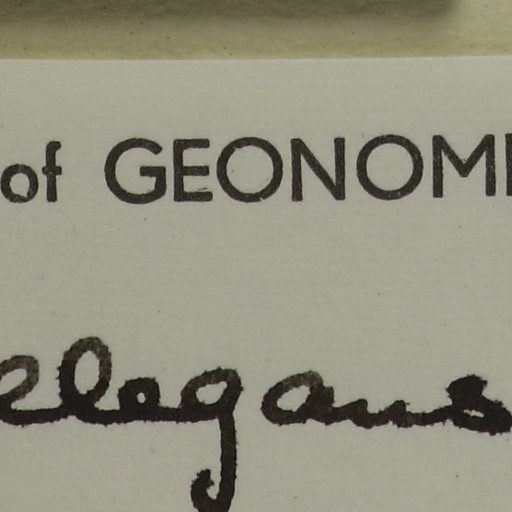 of GEONOM
elegans